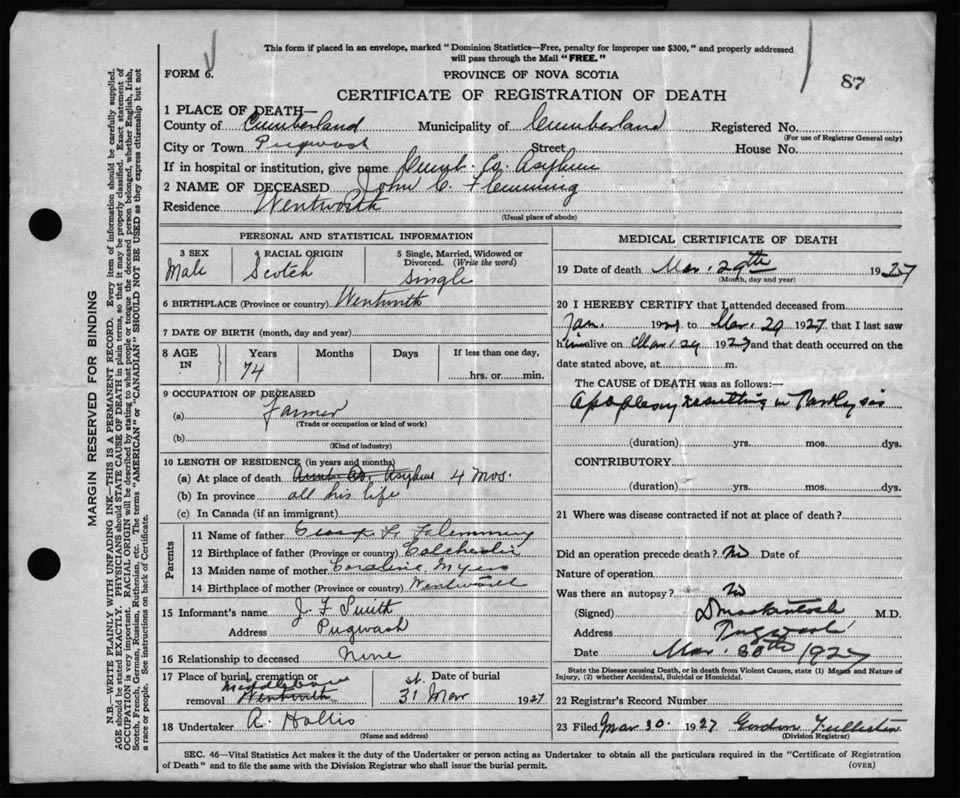 This form if placed in an envelope, marked "Dominion Statistics—Free, penalty for improper use $300," and properly addressed
will pass through the Mail "FREE."
FORM 6.
PROVINCE OF NOVA SCOTIA
87
CERTIFICATE OF REGISTRATION OF DEATH
1 PLACE OF DEATH—
County of Cumberland Municipality of Cumberland Registered No.
(For use of Registrar General only)
City or Town Pugwash Street House No.
If in hospital or institution, give name Cumb. Co. Asylum
2 NAME OF DECEASED John C. Flemming
Residence Wentworth
(Usual place of abode)
PERSONAL AND STATISTICAL INFORMATION
3 SEX
Male
4 RACIAL ORIGIN
Scotch
5 Single, Married, Widowed or
Divorced. (Write the word)
Single
6 BIRTHPLACE (Province or country) Wentworth
7 DATE OF BIRTH (month, day and year)
8 AGE
IN
Years
74
Months
Days
If less than one day,
hrs. or min.
9 OCCUPATION OF DECEASED
(a) Farmer
(Trade or occupation or kind of work)
(b)
(Kind of industry)
10 LENGTH OF RESIDENCE (in years and months)
(a) At place of death Cumb. Co. Asylum 4 Mos.
(b) In province all his life
(c) In Canada (if an immigrant)
Parents
11 Name of father George F. Flemming
12 Birthplace of father (Province or country) Colchester
13 Maiden name of mother Caroline Myers
14 Birthplace of mother (Province or country) Wentworth
15 Informant's name J. F. Smith
Address Pugwash
16 Relationship to deceased None
17 Place of burial, cremation or
removal Wentworth
Date of burial
31st. Mar 1927
18 Undertaker A. Hollis
(Name and address)
MEDICAL CERTIFICATE OF DEATH
19 Date of death Mar. 29th 1927
(Month, day and year)
20 I HEREBY CERTIFY that I attended deceased from
Jan. 1927 to Mar. 29 1927 that I last saw
him alive on Mar. 29 1927 and that death occurred on
date stated above, at m.
The CAUSE of DEATH was as follows:—
Apoplexy resulting in Paralysis
(duration) yrs. mos. dys.
CONTRIBUTORY
(duration) yrs. mos. dys.
21 Where was disease contracted if not at place of death?
Did an operation precede death? No Date of
Nature of operation
Was there an autopsy? No
(Signed) D Mackintosh M.D.
Address Pugwash
Date Mar. 30th 1927
State the Disease causing Death, or in death from Violent Causes, state (1) Means and Nature of
Injury, (2) whether Accidental, Suicidal or Homicidal.
22 Registrar's Record Number
23 Filed Mar 30. 1927 Gordon
(Division Registrar)
SEC. 46—Vital Statistics Act makes it the duty of the Undertaker or person acting as Undertaker to obtain all the particulars required in the "Certificate of Registration
of Death" and to file the same with the Division Registrar who shall issue the burial permit.
(OVER)
MARGIN RESERVED FOR BINDING
N.B.—WRITE PLAINLY WITH UNFADING INK—THIS IS A PERMANENT RECORD. Every item of information should be carefully supplied.
AGE should be stated EXACTLY. PHYSICIANS should STATE CAUSE OF DEATH in plain terms, so that it may be properly classified. Exact statement of
OCCUPATION is very important. RACIAL ORIGIN will be described by stating to what people or tongue the deceased person belonged, whether English, Irish,
Scotch, French, German, Russian, Ruthenian, etc. The terms "AMERICAN" or "CANADIAN" SHOULD NOT BE USED as they express citizenship but not
a race or people. See instructions on back of Certificate.